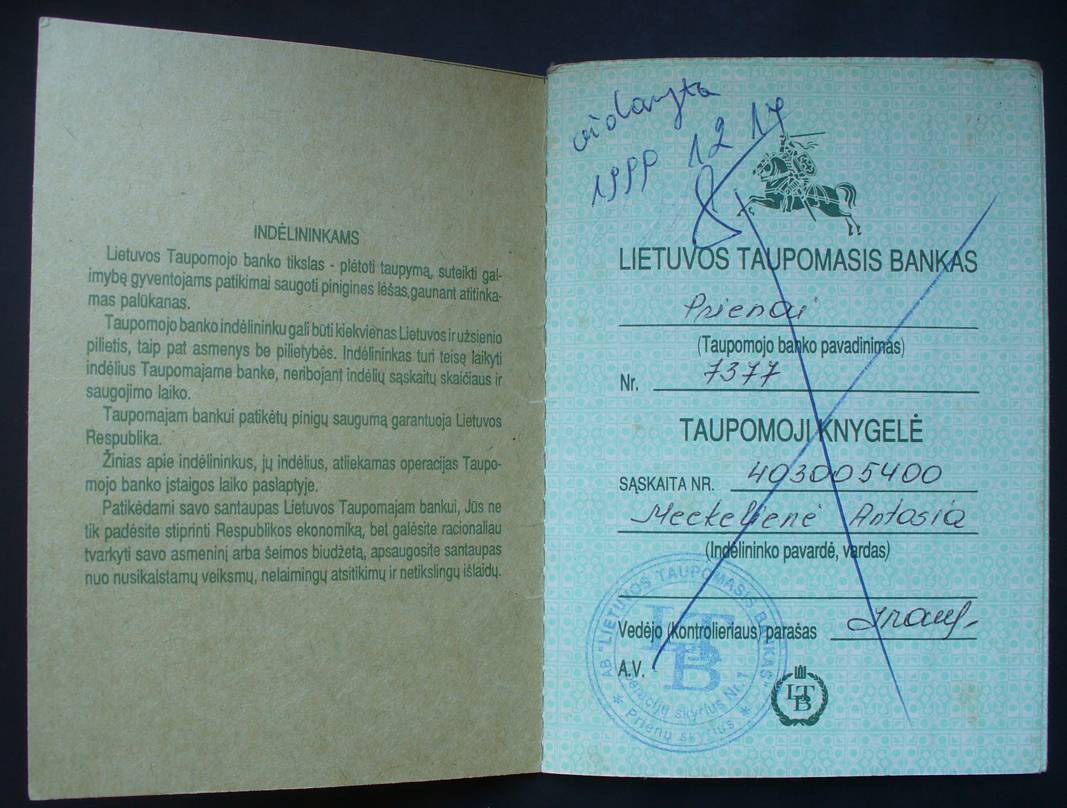 INDĖLININKAMS
Lietuvos Taupomojo banko tikslas - plėtoti taupymą, suteikti gal-
imybę gyventojams patikimai saugoti pinigines lėšas,gaunant atitinka-
mas palūkanas.
Taupomojo banko indėlininku gali būti kiekvienas Lietuvos ir užsienio
pilietis, taip pat asmenys be pilietybės. Indėlininkas turi teisę laikyti
indėlius Taupomajame banke, neribojant indėlių sąskaitų skaičiaus ir
saugojimo laiko.
Taupomajam bankui patikėtų pinigų saugumą garantuoja Lietuvos
Respublika.
Žinias apie indėlininkus, jų indėlius, atliekamas operacijas Taupo-
mojo banko įstaigos laiko paslaptyje.
Patikėdami savo santaupas Lietuvos Taupomajam bankui, Jūs ne
tik padėsite stiprinti Respublikos ekonomiką, bet galėsite racionaliau
tvarkyti savo asmeninį arba šeimos biudžetą, apsaugosite santaupas
nuo nusikalstamų veiksmų, nelaimingų atsitikimų ir netikslingų išlaidų.
1999 12 17
LIETUVOS TAUPOMASIS BANKAS
Prienai
(Taupomojo banko pavadinimas)
Nr. 7377
TAUPOMOJI KNYGELĖ
SĄSKAITA NR. 403005400
Meckelienė Antosia
(Indėlininko pavardė, vardas)
Vedėjo (Kontrolieriaus) parašas
A.V.
AB "LIETUVOS TAUPOMASIS BANKAS"
LTB
Operacijų skyrius Nr. 1
* Prienų skyrius *
LTB